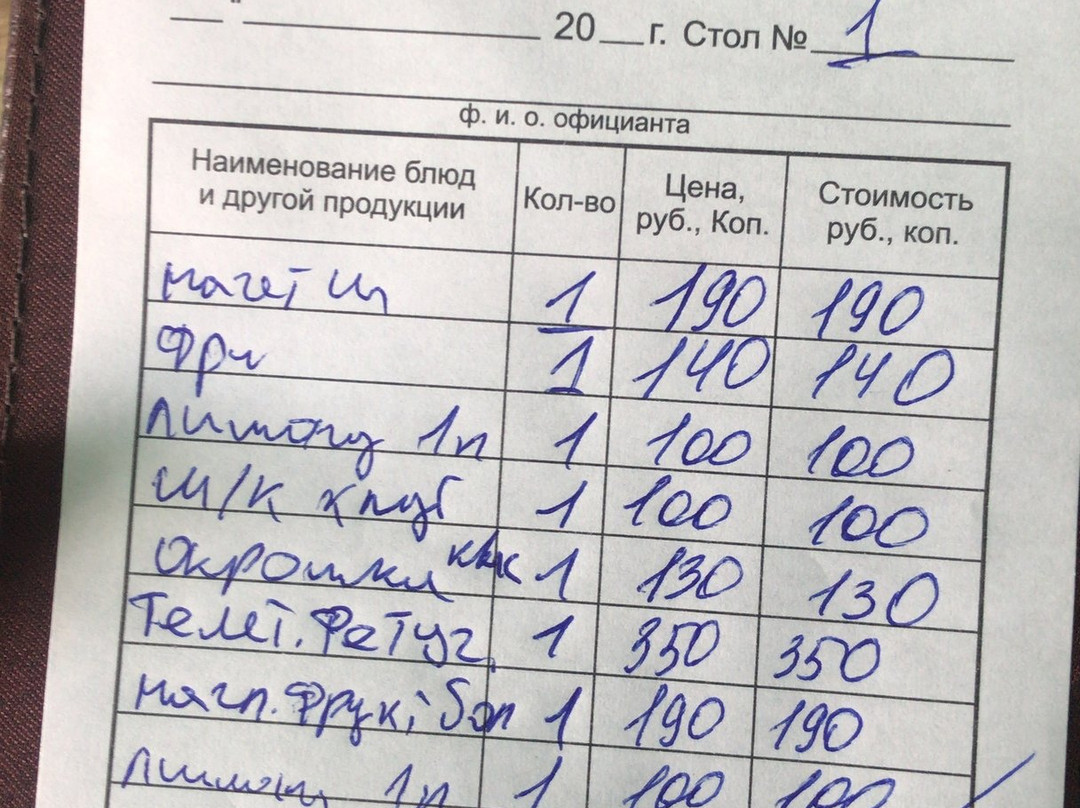 " 20 г. Стол № 1
ф. и. о. официанта
Наименование блюд и другой продукции Кол-во Цена, руб., Коп. Стоимость руб., коп.
нагетц 1 190 190
Фри 1 140 140
Лимонд 1л 1 100 100
м/к клуб 1 100 100
окрошка квас 1 130 130
Телят. Фетуч. 1 350 350
1 190 190
Лимонд 1л 1 100 100